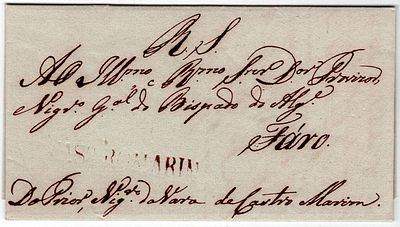 R. S.
Ao Illmo e Rmo Snor Dor Provizor,
Vigro Gal do Bispado do Algve
Fáro.
CASTRO MARIM
Do Prior, Vigro da Vara de Castro Marim.